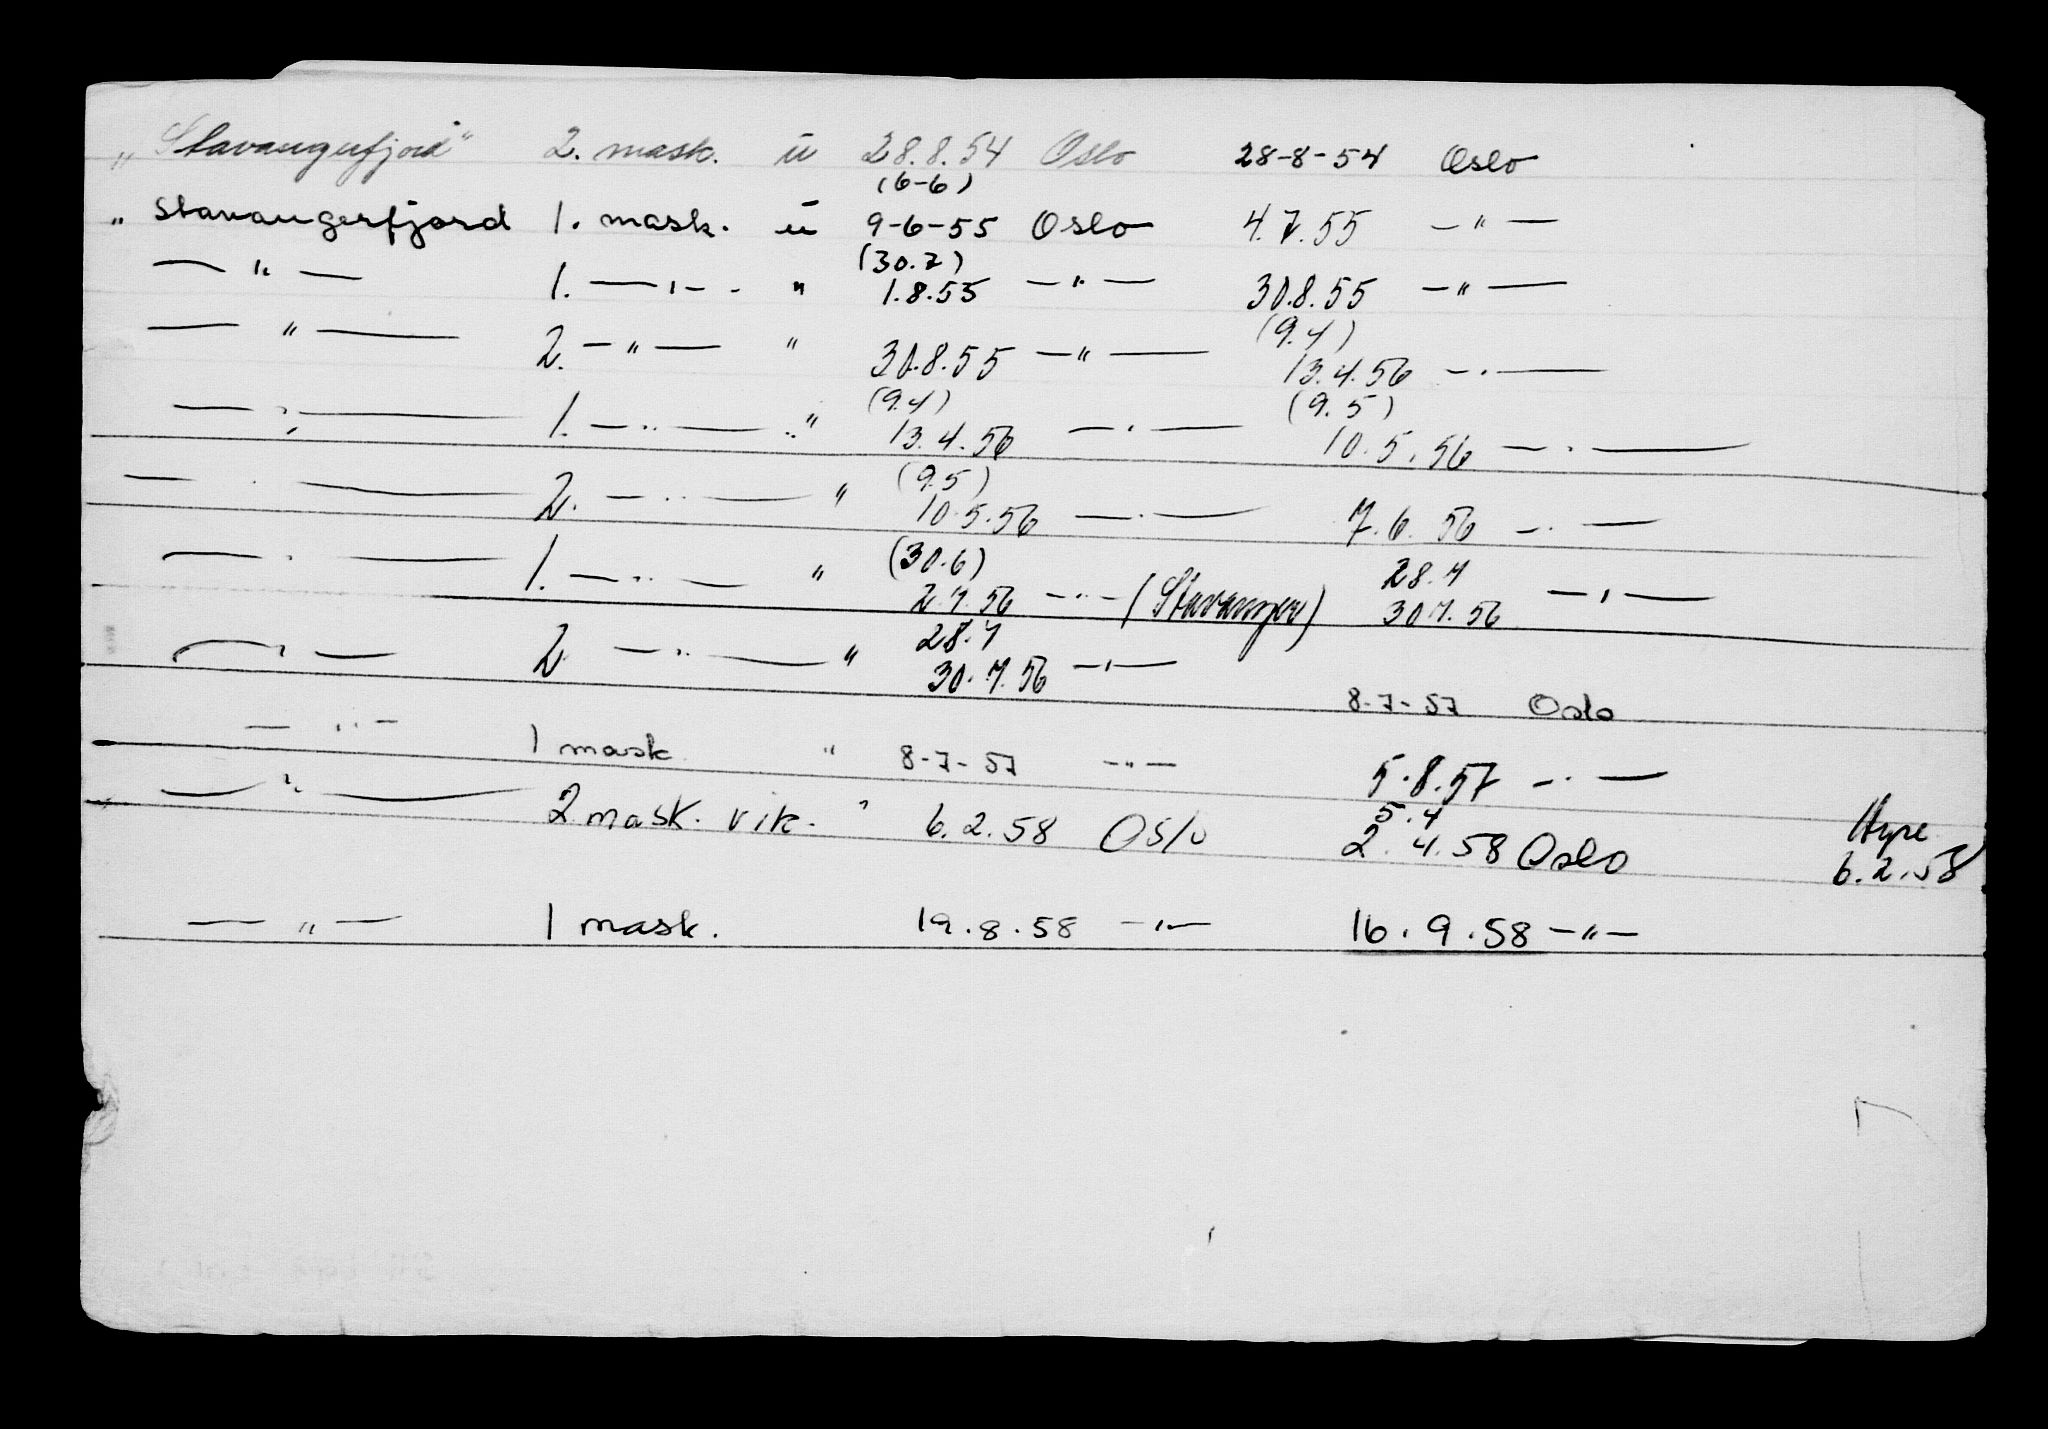 „ Stavangerfjord" 2. mask. u 28.8.54 Oslo 28-8-54 Oslo
(6-6)
„ Stavangerfjord 1. mask. u 9-6-55 Oslo 4.7.55 — " —
(30.7)
— " — 1. — " — " 1.8.55 — " — 30.8.55 — " —
(9.4)
— " — 2. — " — " 30.8.55 — " — 13.4.56 — " —
(9.4) (9.5)
— " — 1. — " — " 13.4.56 — " — 10.5.56 — " —
(9.5)
— " — 2. — " — " 10.5.56 — " — 7.6.56 — " —
(30.6) 28.7
— " — 1. — " — " 2.7.56 — " — (Stavanger) 30.7.56 — " —
28.7
— " — 2. — " — " 30.7.56 — " —
8-7-57 Oslo
— " — 1 mask " 8-7-57 — " —
5.8.57 — " —
— " — 2 mask. vik. " 6.2.58 Oslo 5.4
2.4.58 Oslo Hyre
6.2.58
— " — 1 mask. 19.8.58 — " — 16.9.58 — " —